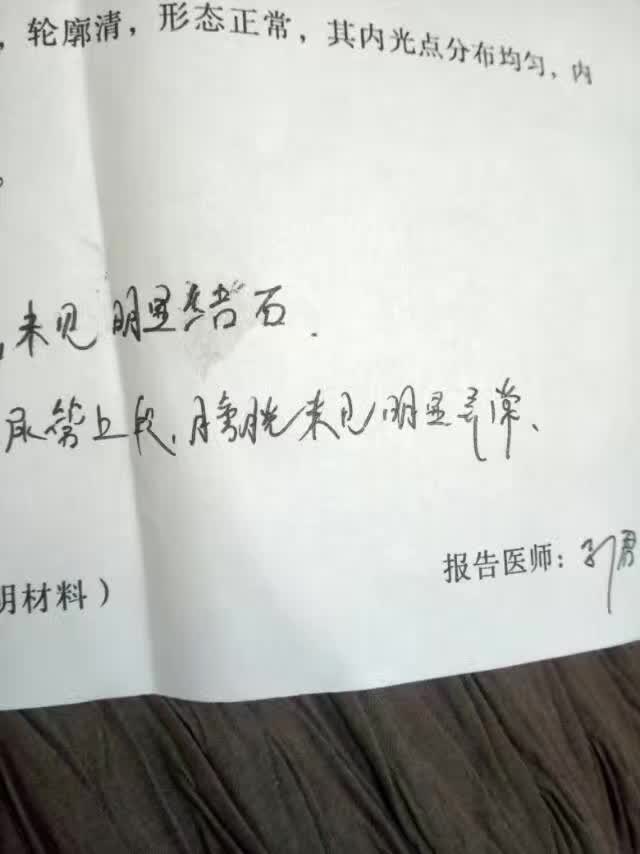 ，轮廓清，形态正常，其内光点分布均匀，内
。
，未见明显结石．
尿管上段、膀胱未见明显异常、
报告医师：
明材料）